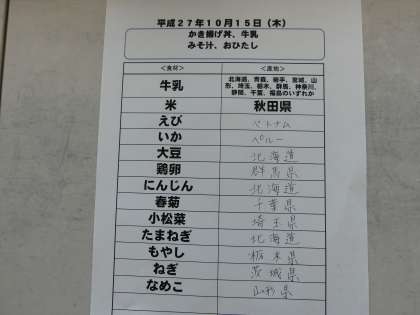 平成27年10月15日（木）
かき揚げ丼、牛乳
みそ汁、おひたし
＜食材＞ ＜産地＞
牛乳 北海道、青森、岩手、宮城、山形、埼玉、栃木、群馬、神奈川、静岡、千葉、福島のいずれか
米 秋田県
えび ベトナム
いか ペルー
大豆 北海道
鶏卵 群馬県
にんじん 北海道
春菊 千葉県
小松菜 埼玉県
たまねぎ 北海道
もやし 栃木県
ねぎ 茨城県
なめこ 山形県